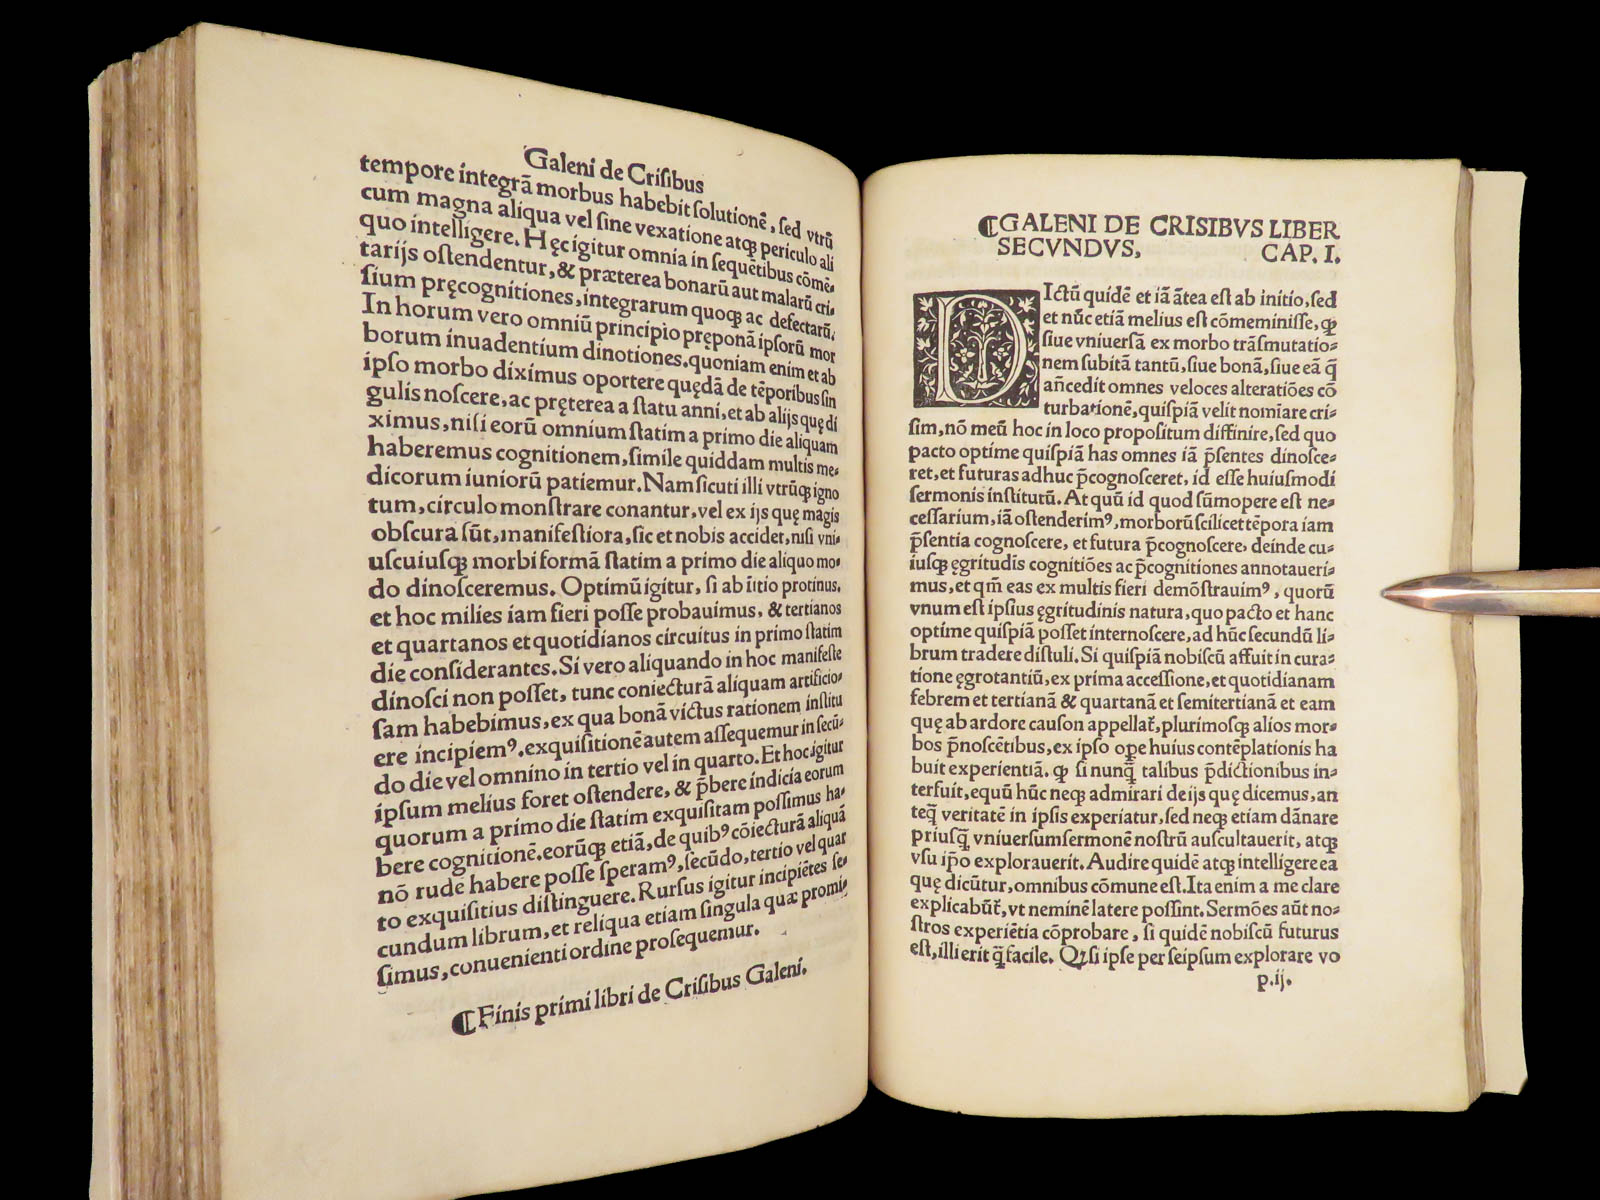 Galeni de Crisibus
tempore integrā morbus habebit solutionē, sed vtrū
cum magna aliqua vel sine vexatione atqꝫ periculo ali
quo intelligere. Hęc igitur omnia in sequētibus cōmē-
tarijs ostendentur, & præterea bonarū aut malarū cri-
sium pręcognitiones, integrarum quoqꝫ ac defectarū.
In horum vero omniū principio prępōnā ipsorū mor
borum inuadentium dinotiones. quoniam enim et ab
ipso morbo diximus oportere quędā de tēporibus sin
gulis noscere, ac pręterea a statu anni, et ab alijs quę di
ximus, nisi eorū omnium statim a primo die aliquam
haberemus cognitionem, simile quiddam multis me-
dicorum iuniorū patiemur. Nam sicuti illi vtrūqꝫ igno
tum, circulo monstrare conantur, vel ex ijs quę magis
obscura sūt, manifestiora, sic et nobis accidet, nisi vni-
uscuiusqꝫ morbi formā statim a primo die aliquo mo-
do dinosceremus. Optimū igitur, si ab iītio protinus,
et hoc milies iam fieri posse probauimus, & tertianos
et quartanos et quotidianos circuitus in primo statim
die considerantes. Si vero aliquando in hoc manifeste
dinosci non posset, tunc coniecturā aliquam artificio-
sam habebimus, ex qua bonā victus rationem institu
ere incipiemꝰ. exquisitionē autem assequemur in secū-
do die vel omnino in tertio vel in quarto. Et hoc igitur
ipsum melius foret ostendere, & p̄bere indicia eorum
quorum a primo die statim exquisitam possimus ha-
bere cognitionē. eorūqꝫ etiā, de quibꝰ cōiecturā aliquā
nō rudē habere posse speramꝰ, secūdo, tertio vel quar
to exquisitius distinguere. Rursus igitur incipiētes se-
cundum librum, et reliqua etiam singula quæ promi-
simus, conuenienti ordine prosequemur.
¶ Finis primi libri de Crisibus Galeni.
¶ GALENI DE CRISIBVS LIBER
SECVNDVS, CAP. I.
DIctū quidē et iā ātea est ab initio, sed
et nūc etiā melius est cōmeminisse, qꝫ
siue vniuersā ex morbo trāsmutatio-
nem subitā tantū, siue bonā, siue eā q̄
añcedit omnes veloces alteratiōes cō
turbationē, quispiā velit nomiare cri-
sim, nō meū hoc in loco propositum diffinire, sed quo
pacto optime quispiā has omnes iā p̄sentes dinosce-
ret, et futuras adhuc p̄cognosceret, id esse huiusmodi
sermonis institutū. At quū id quod sūmopere est ne-
cessarium, iā ostenderimꝰ, morborū scilicet tēpora iam
p̄sentia cognoscere, et futura p̄cognoscere, deinde cu-
iusqꝫ ęgritudīs cognitiōes ac p̄cognitiones annotaueri-
mus, et qm̄ eas ex multis fieri demōstrauimꝰ, quorū
vnum est ipsius ęgritudinis natura, quo pacto et hanc
optime quispiā posset internoscere, ad hūc secundū li-
brum tradere distuli. Si quispiā nobiscū affuit in cura-
tione ęgrotantiū, ex prima accessione, et quotidianam
febrem et tertianā & quartanā et semitertianā et eam
quę ab ardore causon appellat᷑, plurimosqꝫ alios mor-
bos p̄noscētibus, ex ipso ope huius contēplationis ha
buit experientiā. qꝫ si nunq̄ talibus p̄dictionibus in-
terfuit, equū hūc neqꝫ admirari de ijs quę dicemus, an
teq̄ veritatē in ipsis experiatur, sed neqꝫ etiam dānare
priusq̄ vniuersum sermonē nostrū auscultauerit, atqꝫ
vsu ip̄o explorauerit. Audire quidē atqꝫ intelligere ea
quę dicūtur, omnibus cōmune est. Ita enim a me clare
explicabūt᷑, vt neminē latere possint. Sermōes aūt no-
stros experiētia cōprobare, si quidē nobiscū futurus
est, illi erit q̄ facile. Qꝫ si ipse per seipsum explorare vo
p.ij.